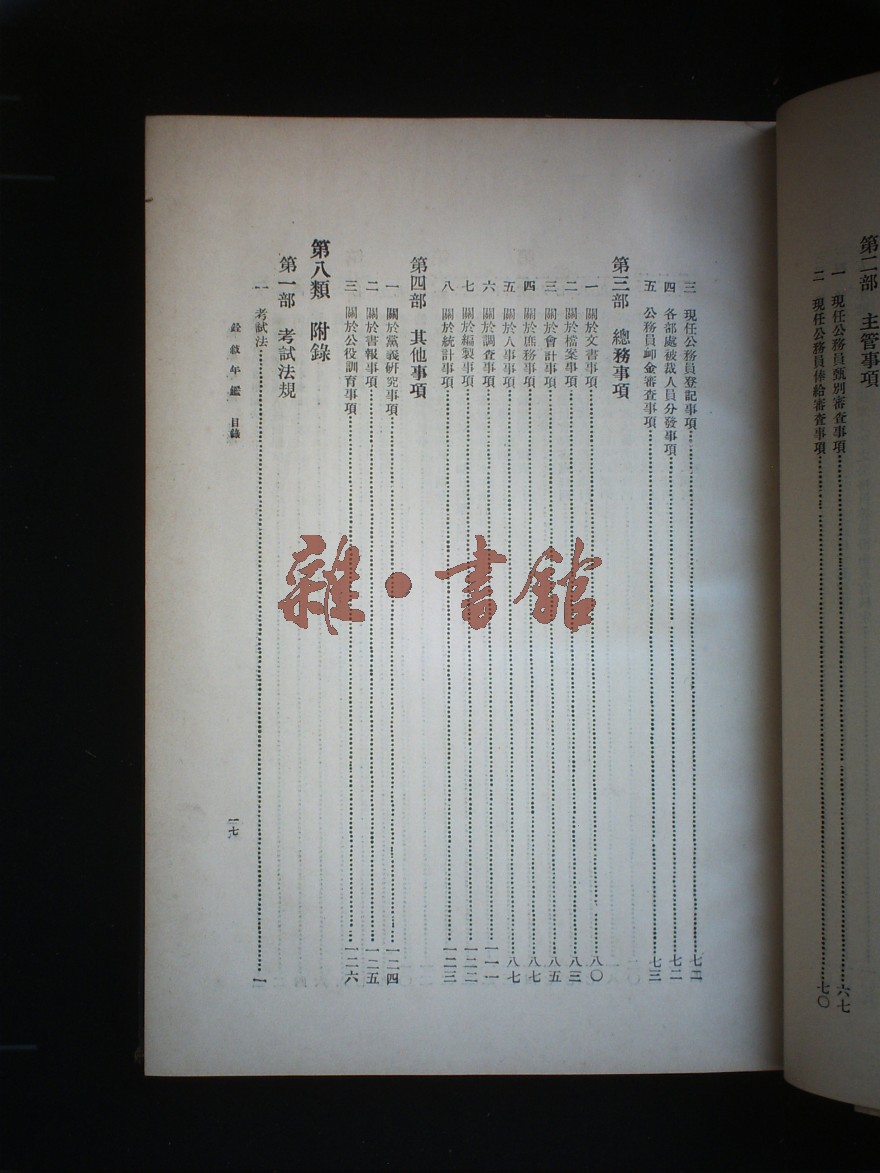 第二部 主管事項
一 現任公務員甄別審查事項 六七
二 現任公務員俸給審查事項 七〇
三 現任公務員登記事項 七二
四 各部處被裁人員分發事項 七二
五 公務員卹金審查事項 七三
第三部 總務事項
一 關於文書事項 八〇
二 關於檔案事項 八三
三 關於會計事項 八五
四 關於庶務事項 八七
五 關於人事事項 八七
六 關於調查事項 一一一
七 關於編製事項 一二二
八 關於統計事項 一二三
第四部 其他事項
一 關於黨義研究事項 一二四
二 關於書報事項 一二五
三 關於公役訓育事項 一二六
第八類 附錄
第一部 考試法規
一 考試法 一
銓敘年鑑 目錄
一七
雜·書館